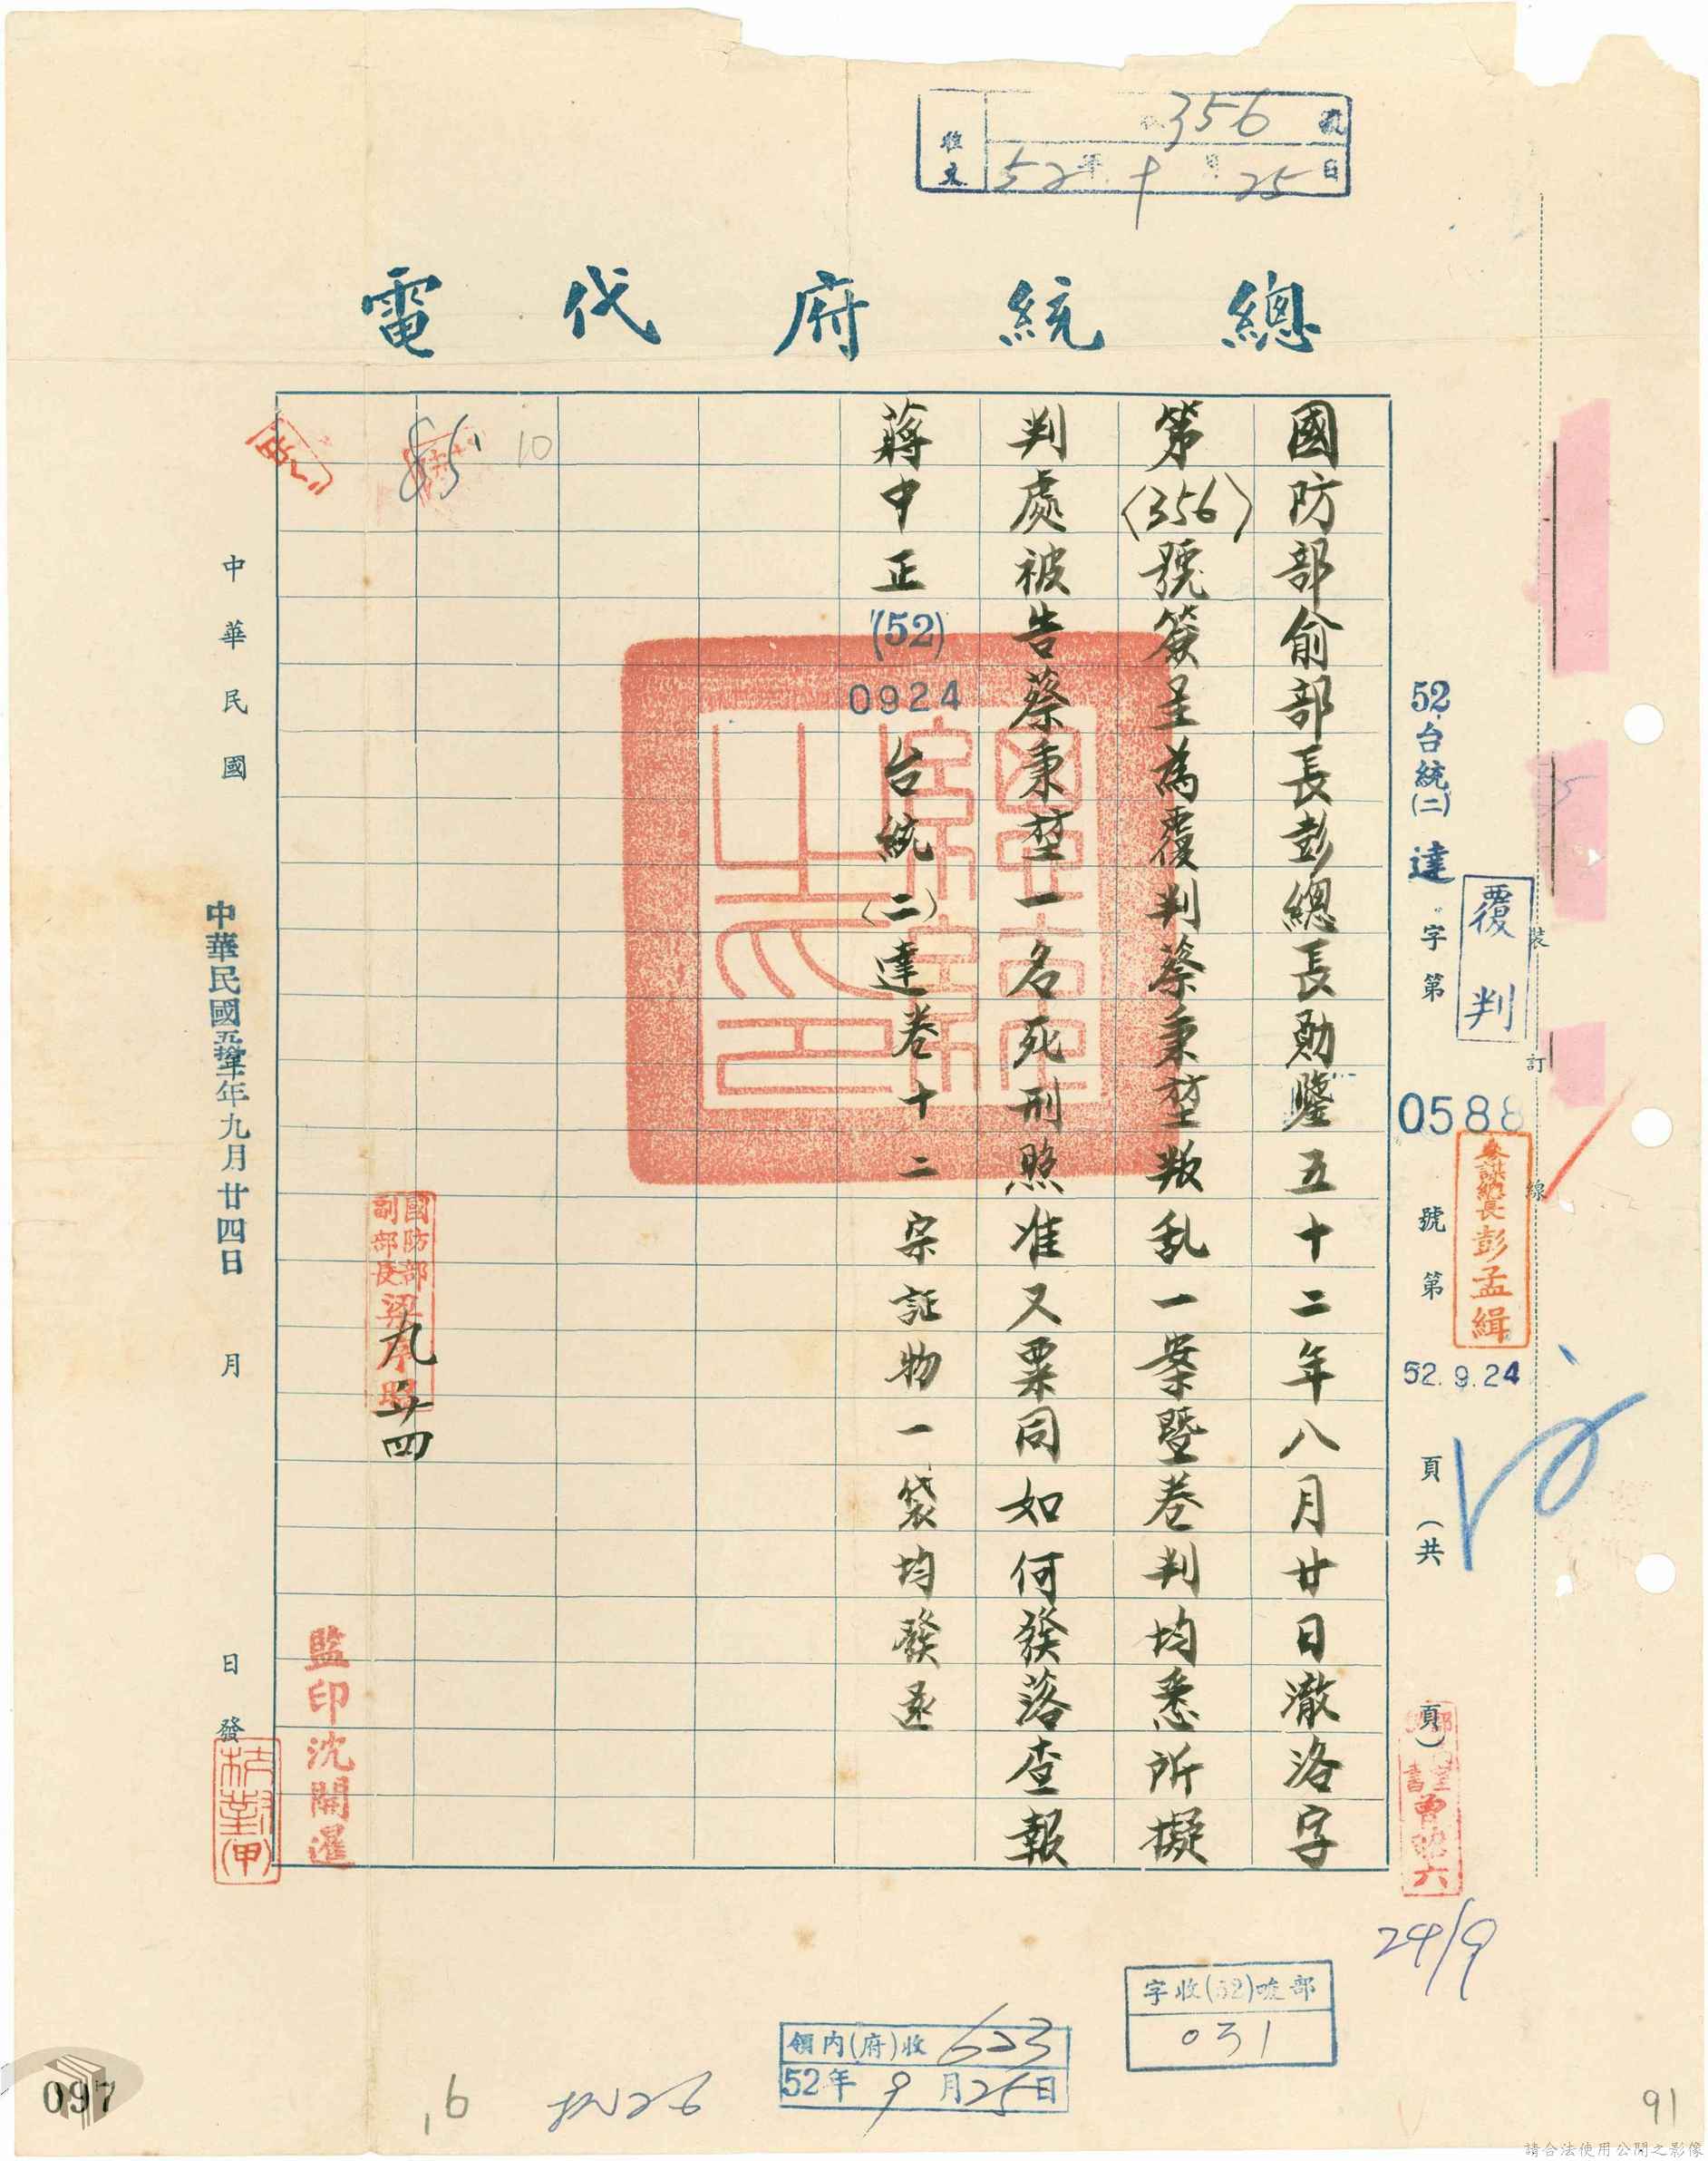 收文
356號
52年9月25日
總統府代電
52台統(二)達字第0588號第頁(共頁)
覆判
裝訂線
參謀總長彭孟緝
52.9.24
國防部俞部長彭總長勛鑒五十二年八月廿日澈洛字
第(356)號簽呈為覆判蔡秉堃叛乱一案暨卷判均悉所擬
判處被告蔡秉堃一名死刑照准又粟同如何發落查報
蔣中正(52)0924台統(二)達卷十二宗証物一袋均發還
10
85
國防部副部長梁序昭
九廿四
監印沈開暹
中華民國月日發
中華民國五拾弍年九月廿四日
24/9
字收(52)唆部
031
領內(府)收623
52年9月25日
097
91
請合法使用公開之影像